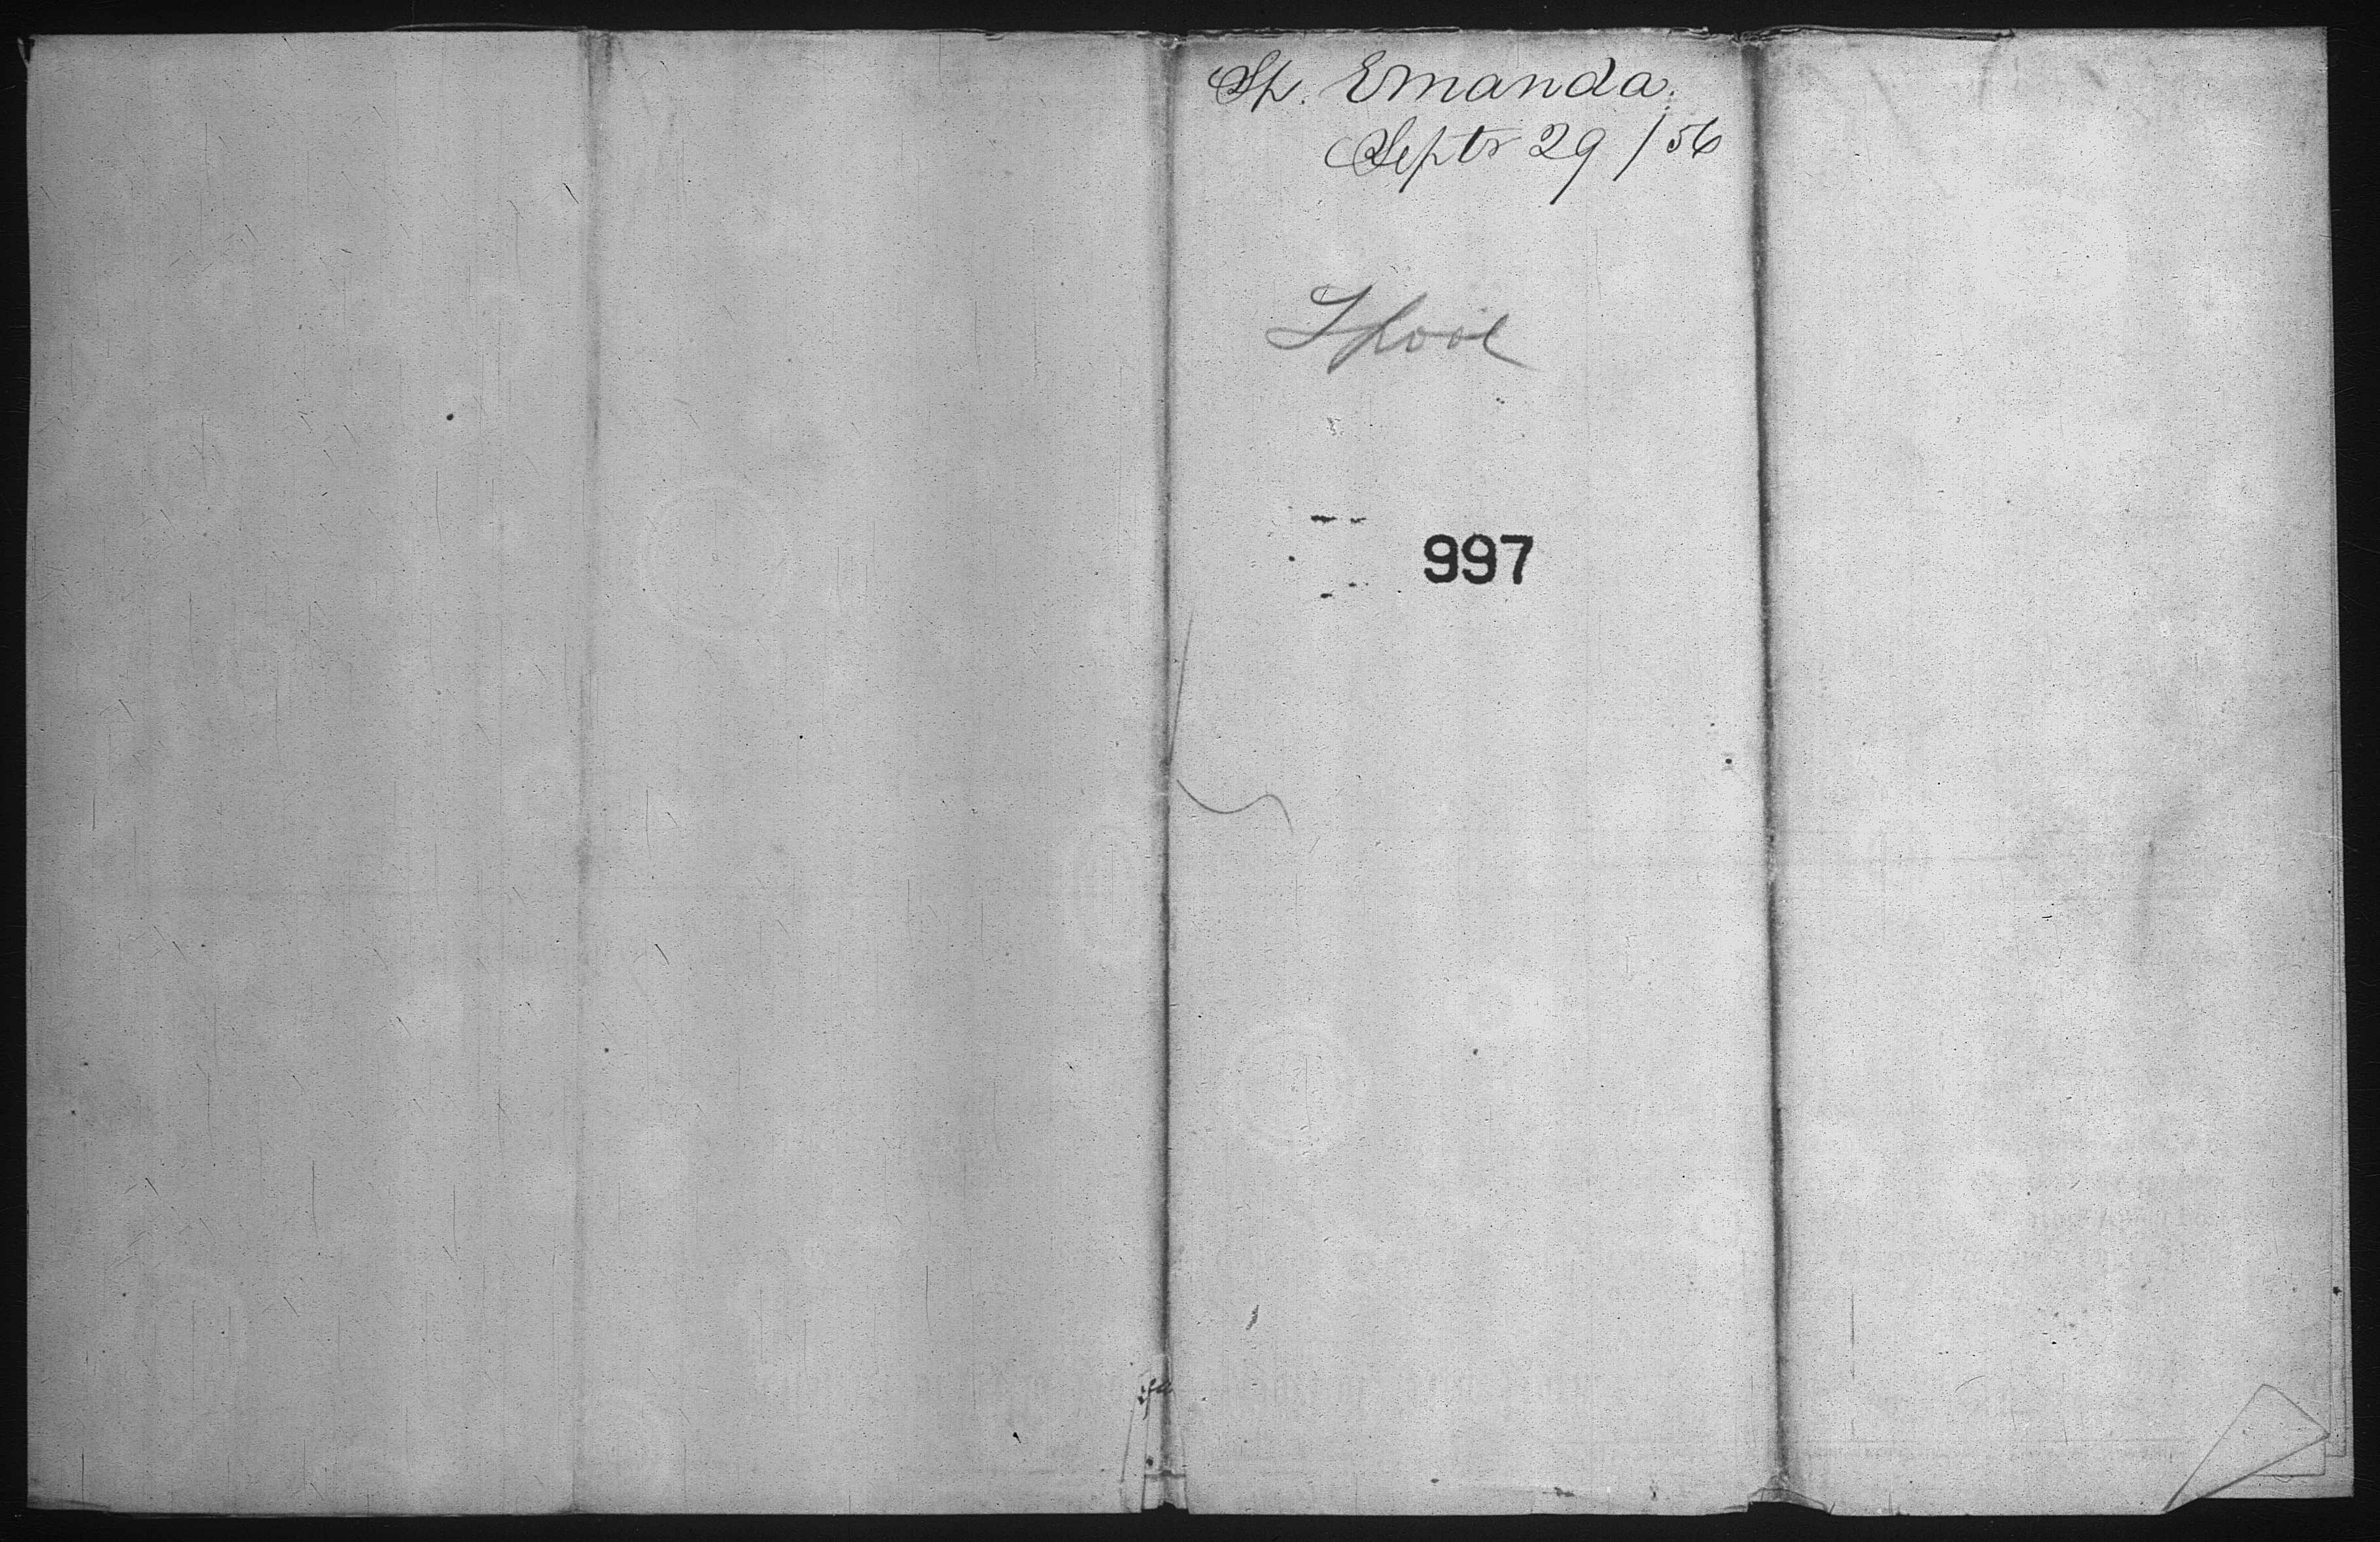 Sh. Emanda.
Septr 29 / 56
997